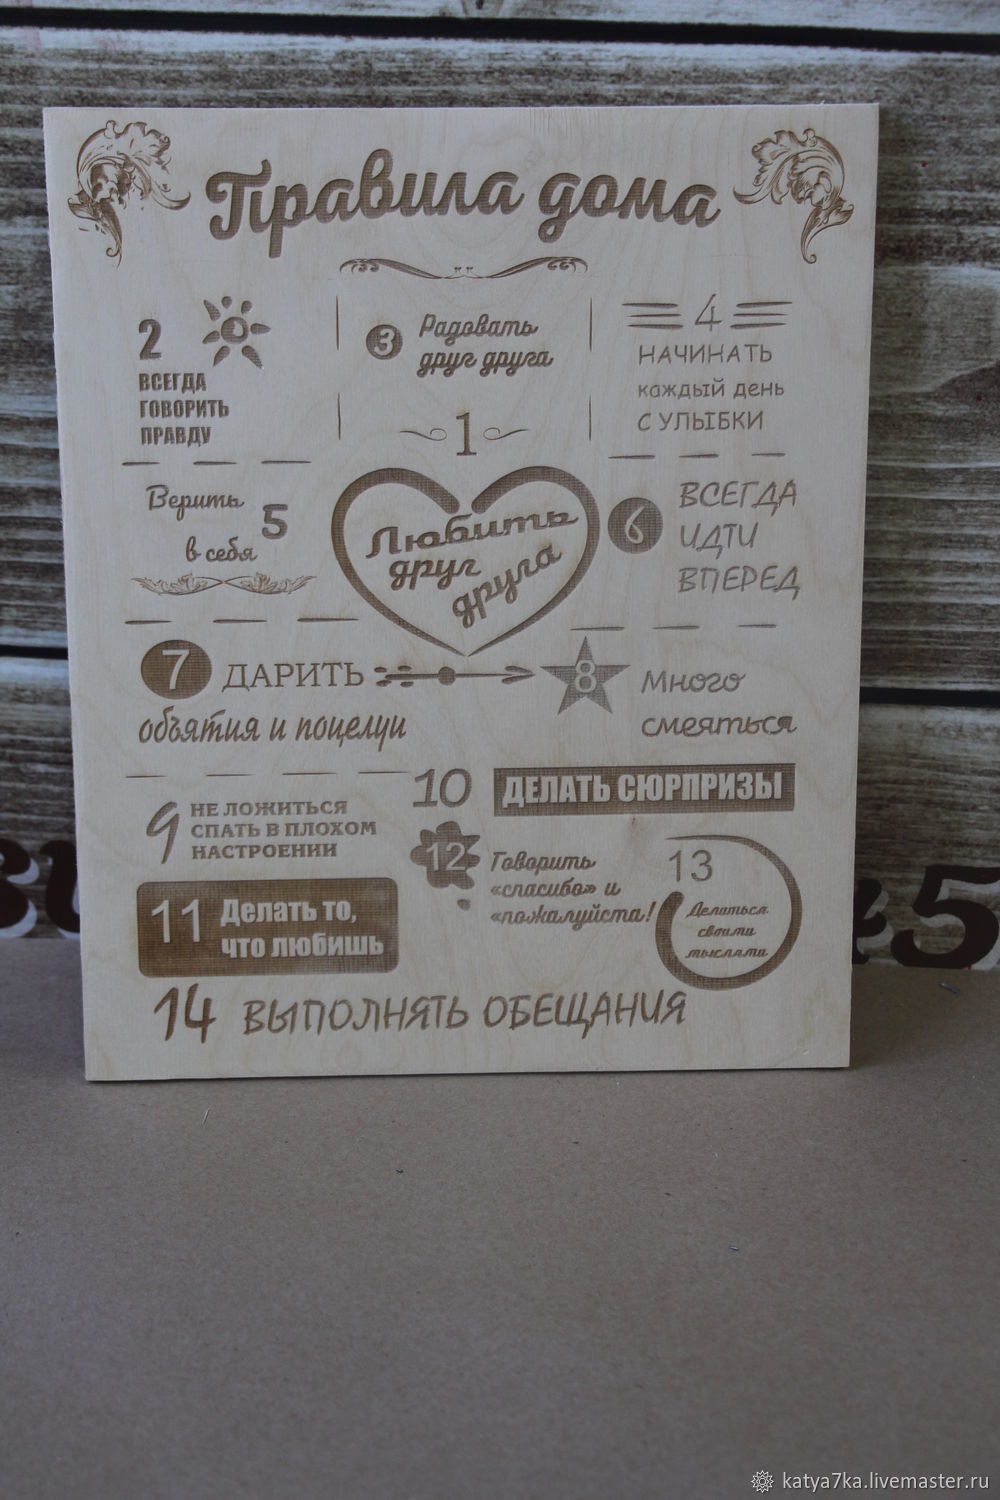 Правила дома
2
ВСЕГДА
ГОВОРИТЬ
ПРАВДУ
3
Радовать
друг друга
4
НАЧИНАТЬ
каждый день
С УЛЫБКИ
1
Любить
друг
друга
Верить
5
в себя
6
ВСЕГДА
ИДТИ
ВПЕРЕД
7 ДАРИТЬ
объятия и поцелуи
8
Много
смеяться
9
НЕ ЛОЖИТЬСЯ
СПАТЬ В ПЛОХОМ
НАСТРОЕНИИ
10 ДЕЛАТЬ СЮРПРИЗЫ
11
Делать то,
что любишь
12
Говорить
«спасибо» и
«пожалуйста!
13
Делиться
своими
мыслями
14 ВЫПОЛНЯТЬ ОБЕЩАНИЯ
5
katya7ka.livemaster.ru